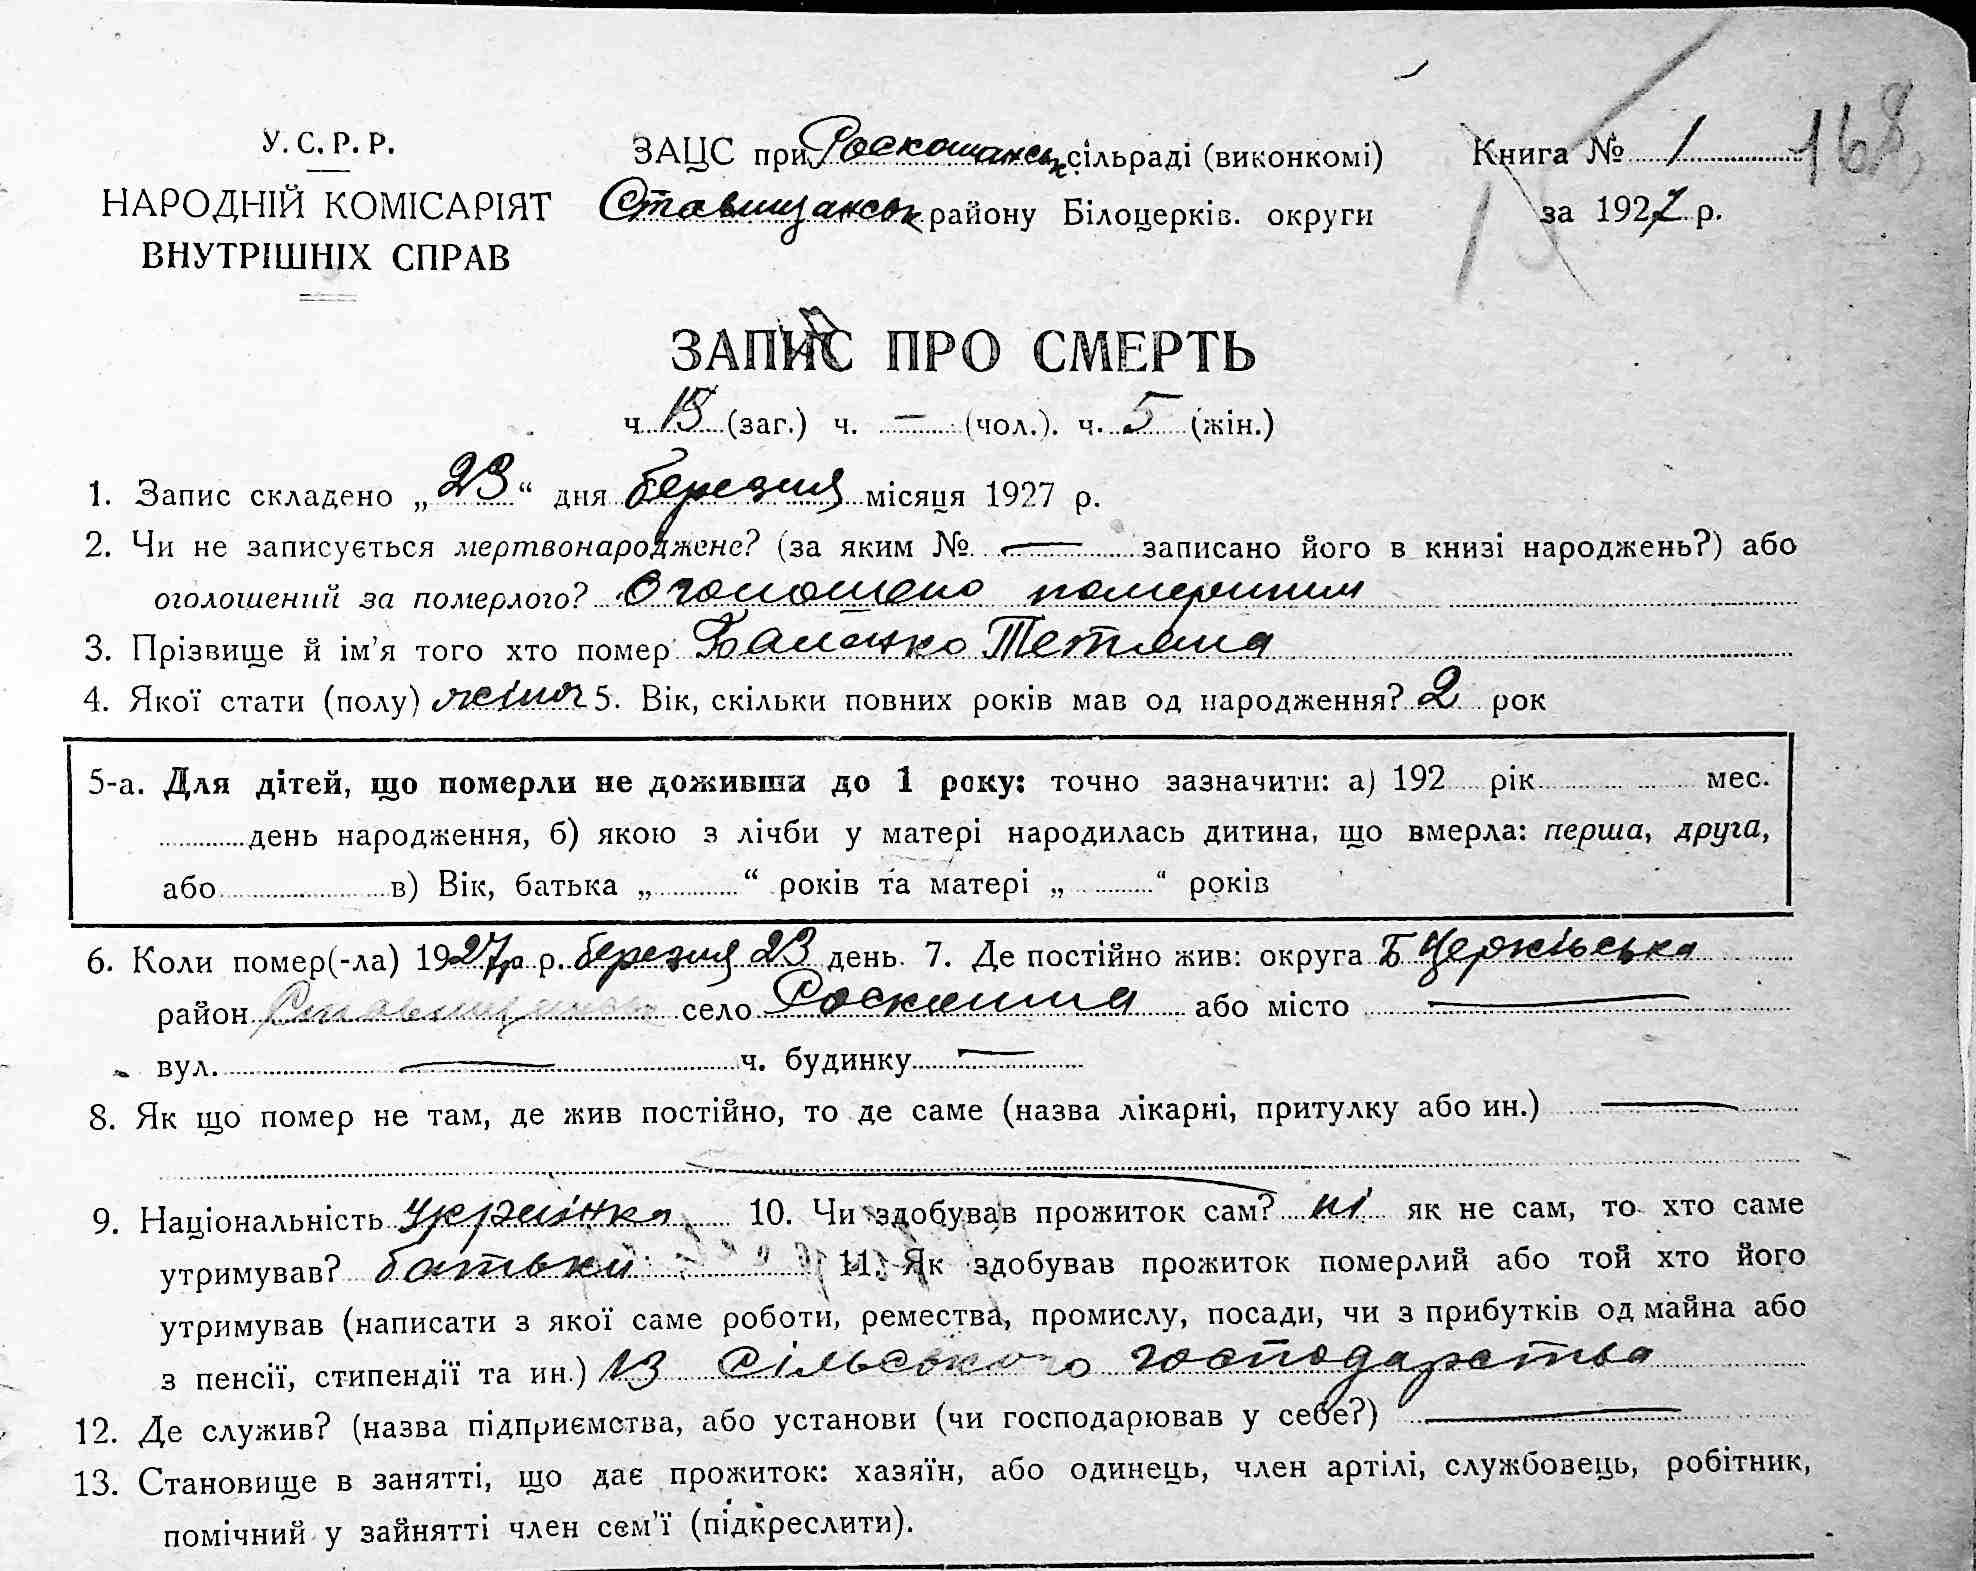 У. С. Р. Р.
НАРОДНІЙ КОМІСАРІЯТ
ВНУТРІШНІХ СПРАВ
ЗАЦС при Роскошанськ сільраді (виконкомі)
Ставищанськ району Білоцерків. округи
Книга № 1
за 1927 р.
168
ЗАПИС ПРО СМЕРТЬ
ч. (заг.) ч. — (чол.). ч. 5 (жін.)
1. Запис складено „23“ дня березня місяця 1927 р.
2. Чи не записується мертвонароджене? (за яким № — записано його в книзі народжень?) або
оголошений за померлого? Оголошено помершим
3. Прізвище й ім'я того хто помер Тетяна
4. Якої стати (полу) жіноч 5. Вік, скільки повних років мав од народження? 2 рок
5-а. Для дітей, що померли не доживши до 1 року: точно зазначити: а) 192 рік мес.
день народження, б) якою з лічби у матері народилась дитина, що вмерла: перша, друга,
або в) Вік, батька „ “ років та матері „ “ років
6. Коли помер(-ла) 1927 р. березня 23 день. 7. Де постійно жив: округа Б Церківська
район Ставищанськ село Роскошна або місто —
вул. — ч. будинку —
8. Як що помер не там, де жив постійно, то де саме (назва лікарні, притулку або ин.) —
9. Національність Українка 10. Чи здобував прожиток сам? ні як не сам, то хто саме
утримував? батьки 11. Як здобував прожиток померлий або той хто його
утримував (написати з якої саме роботи, ремества, промислу, посади, чи з прибутків од майна або
з пенсії, стипендії та ин.) Із сільського господарства
12. Де служив? (назва підприємства, або установи (чи господарював у себе?) —
13. Становище в занятті, що дає прожиток: хазяїн, або одинець, член артілі, службовець, робітник,
помічний у зайнятті член сем'ї (підкреслити).